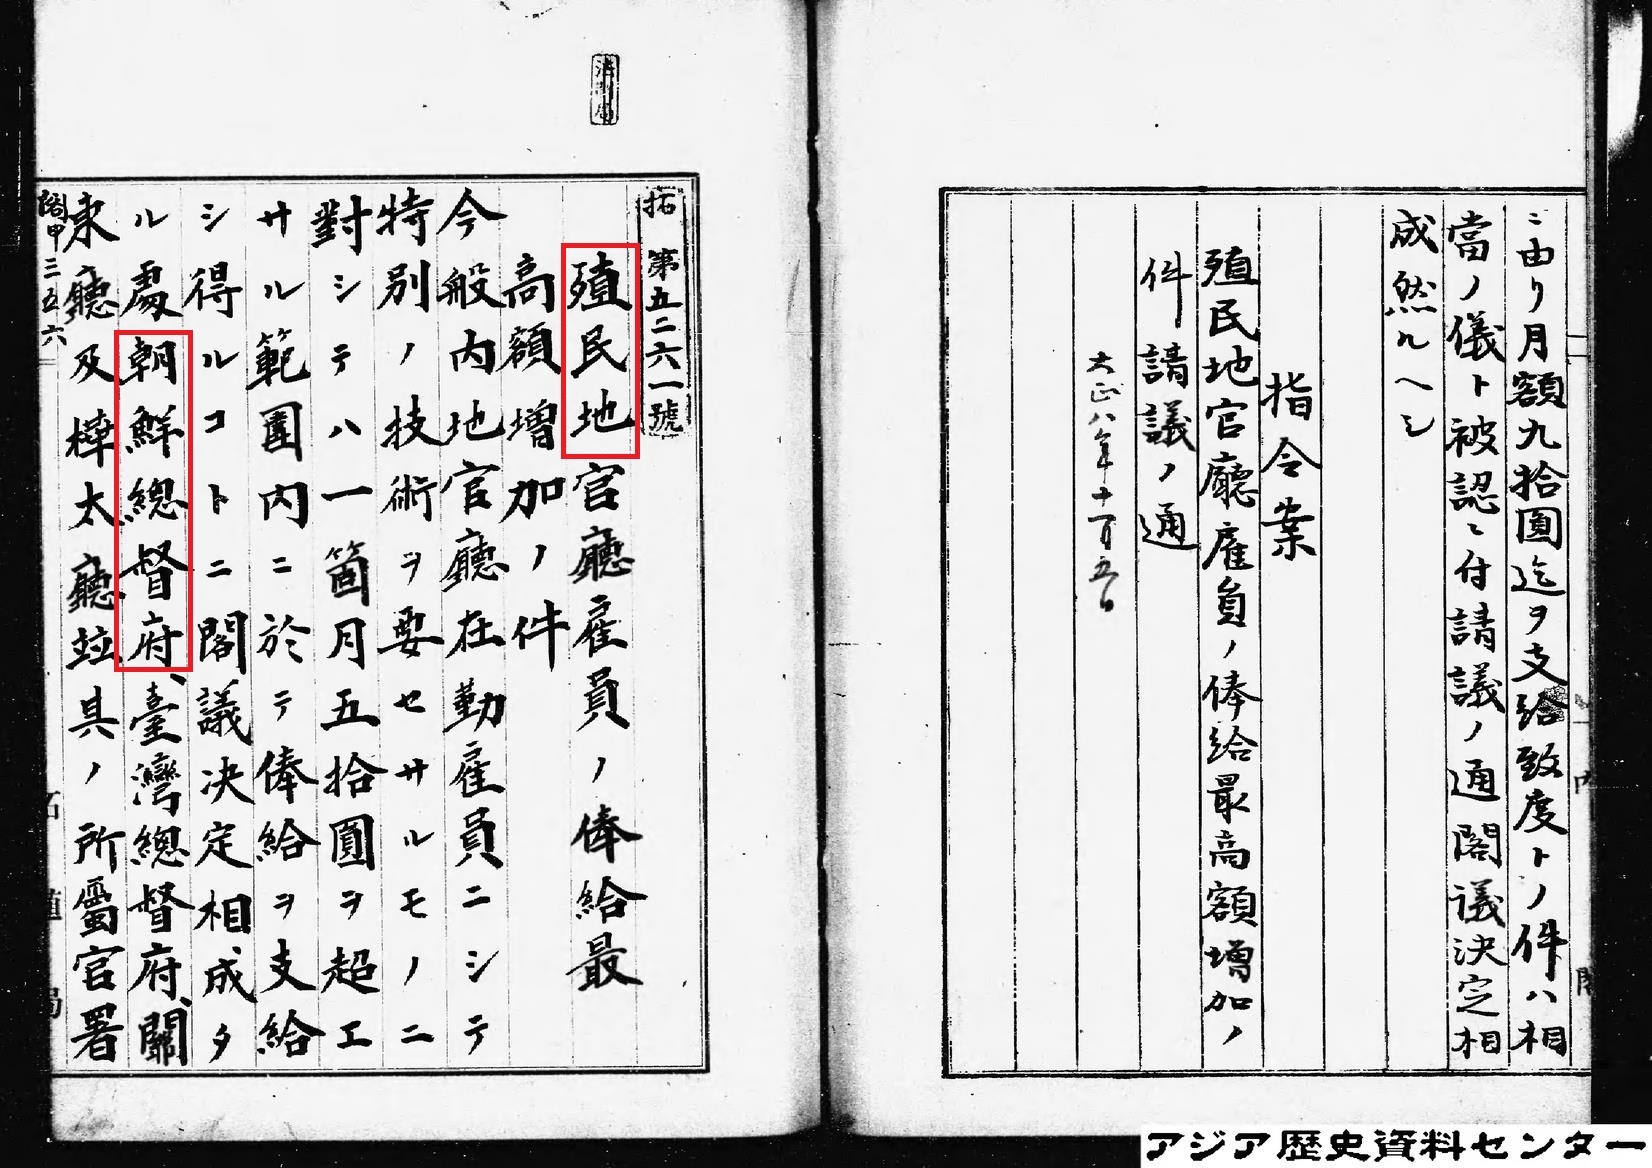 ニ由リ月額九拾圓迄ヲ支給致度トノ件ハ相
當ノ儀ト被認ニ付請議ノ通閣議決定相
成然ルヘシ
指令案
殖民地官廳雇員ノ俸給最高額増加ノ
件請議ノ通
大正八年十一月五日
拓第五二六一號
殖民地官廳雇員ノ俸給最
高額増加ノ件
今般内地官廳在勤雇員ニシテ
特別ノ技術ヲ要セサルモノニ
對シテハ一箇月五拾圓ヲ超エ
サル範圍内ニ於テ俸給ヲ支給
シ得ルコトニ閣議决定相成タ
ル處朝鮮總督府、臺灣總督府、關
東廳及樺太廳竝其ノ所屬官署
閣甲三五六
拓殖局
アジア歴史資料センター